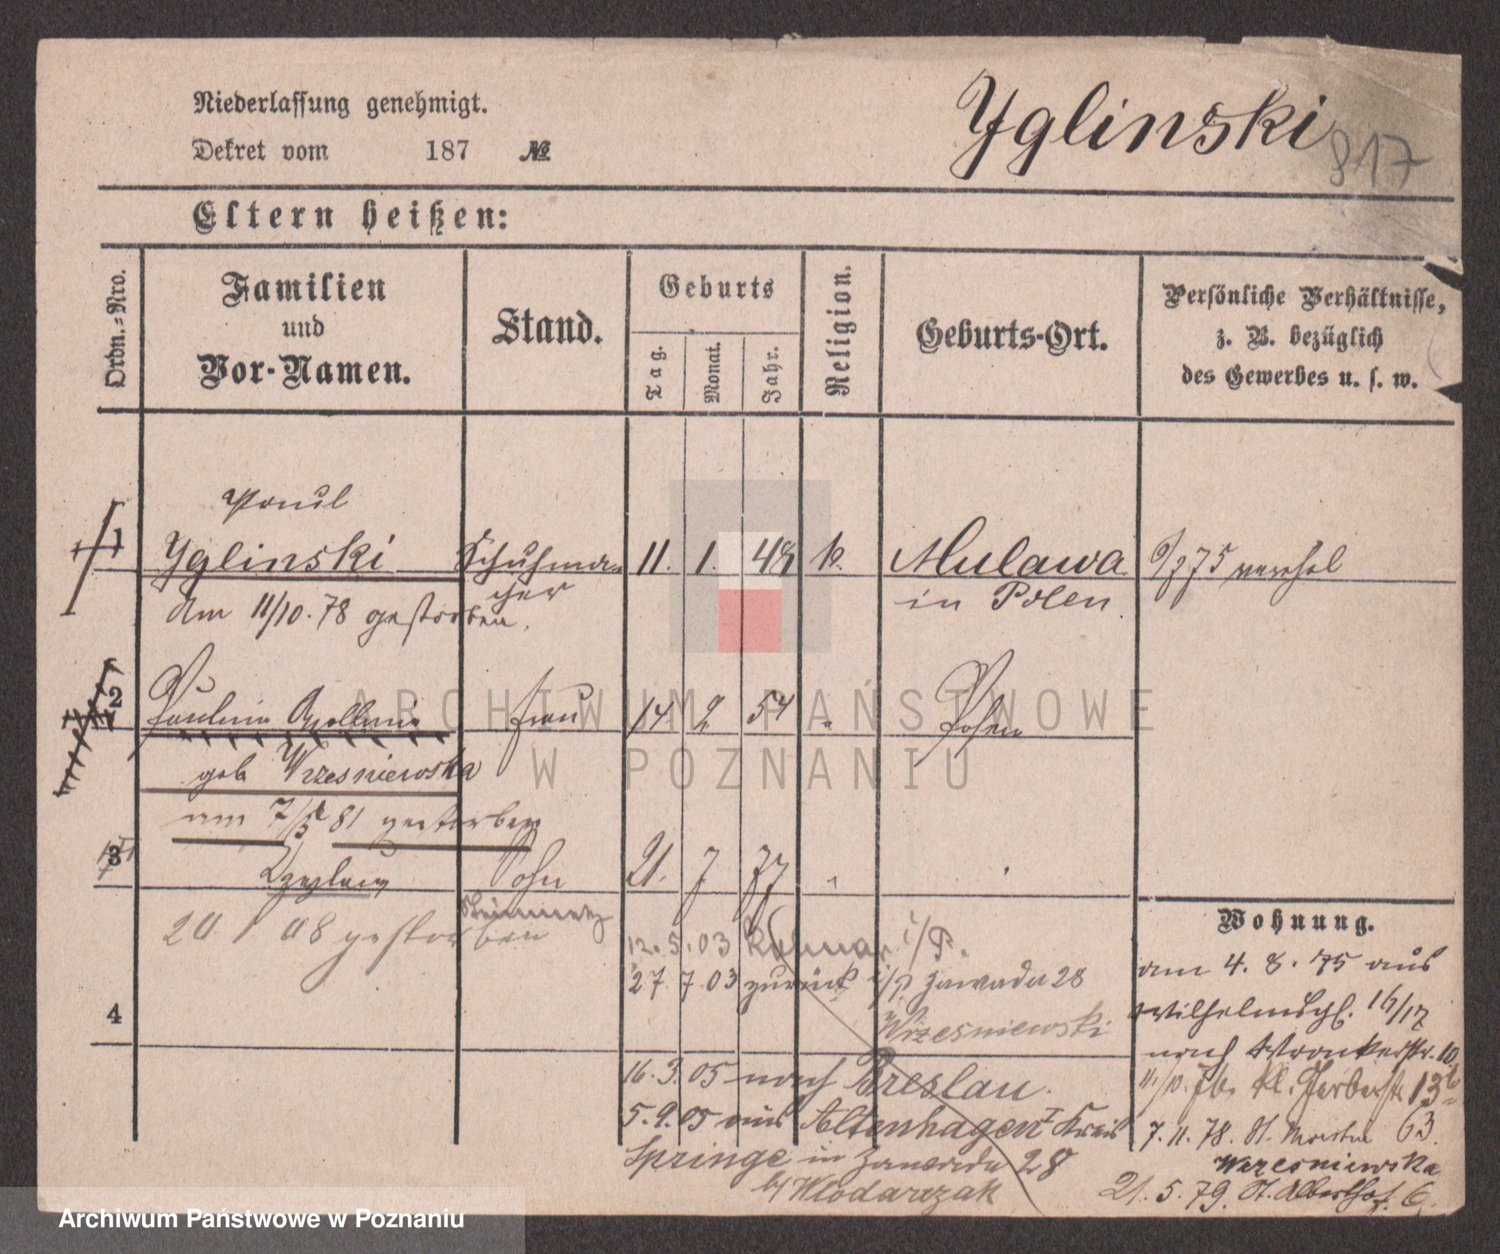 Niederlassung genehmigt.
Dekret vom 187 №
Yglinski
817
Eltern heißen:
Ordn.-Nro.
Familien und Vor-Namen.
Stand.
Geburts
Tag.
Monat.
Jahr.
Religion.
Geburts-Ort.
Persönliche Verhältnisse,
z. B. bezüglich
des Gewerbes u. s. w.
Paul
1 Yglinski Schuhmacher 11. 1. 48 k. Mulawa
in Polen
9/7 75
Am 11/10. 78 gestorben.
2 Paulina Apollonia Frau 14 2 54 " Posen
geb Wrzesniewska
am 7/5 81 gestorben
3 Sohn 21. 7 77 "
20 1 08 gestorben
12. 5. 03 Kolmar i/P.
27. 7. 03 zurück i/P Zawade 28
Wrzesniewski
4
16. 3. 05 nach Breslau.
5. 9. 05 aus Altenhagen I Kreis
Springe in Zawade 28
b/ Wlodarczak
Wohnung.
am 4. 8. 75 aus
Wilhelmspl. 16/17
nach Wronkerstr. 10.
11/10. 76 kl. Gerberstr 13b
7. 11. 78. St. Martin 63.
Wrzesniewska
21. 5. 79. St. Adalbertstr. 6.
ARCHIWUM PAŃSTWOWE
W POZNANIU
Archiwum Państwowe w Poznaniu